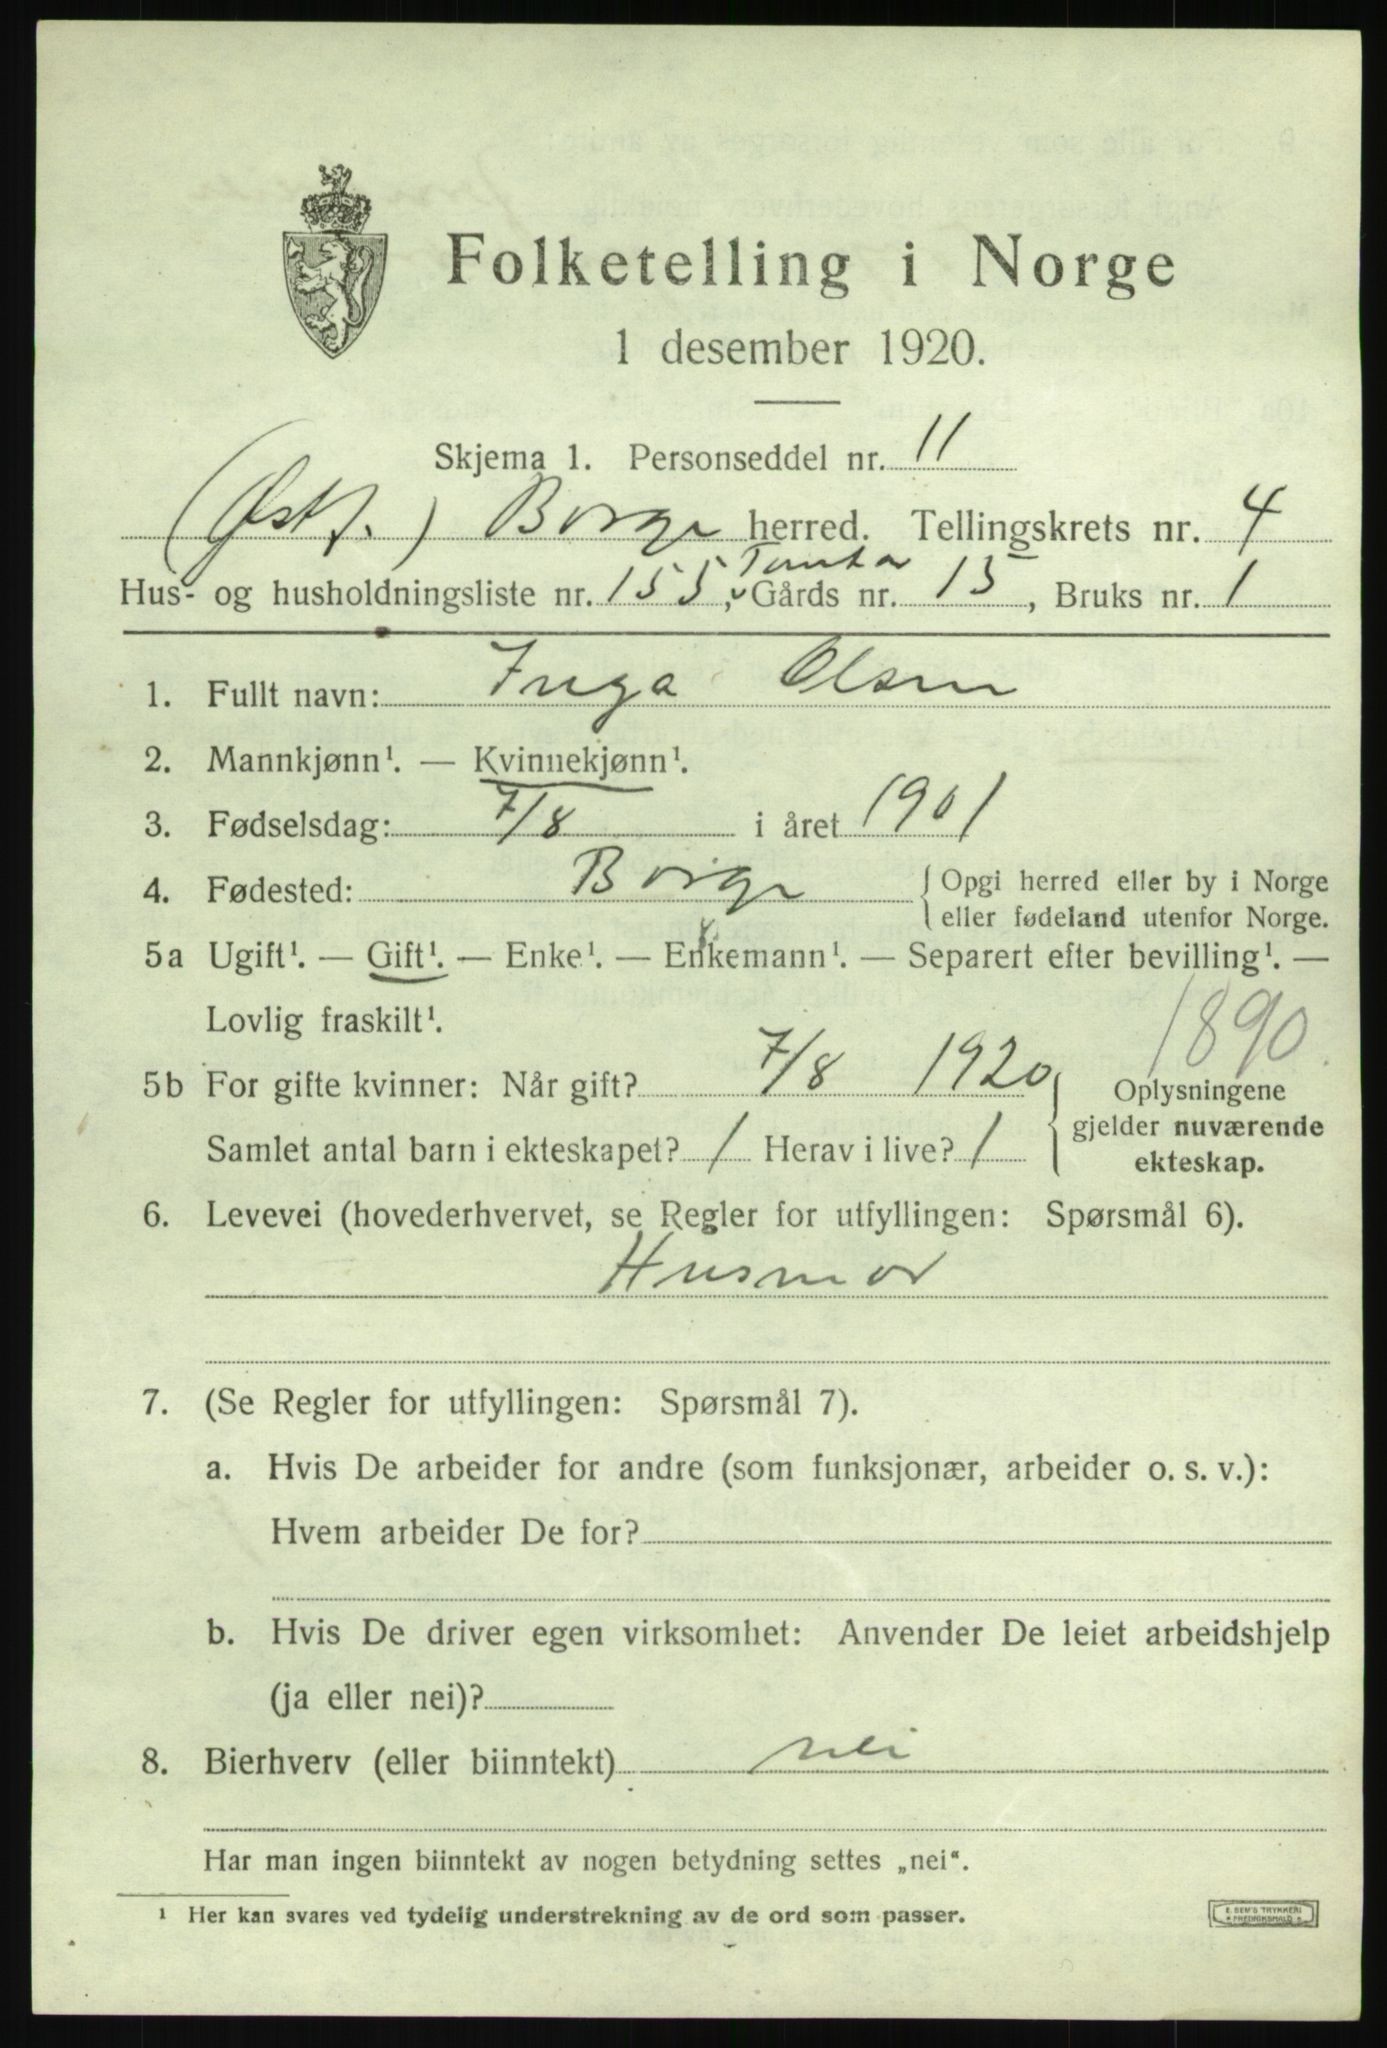 Folketelling i Norge
1 desember 1920.
Skjema 1. Personseddel nr. 11
(Østf.) Borge herred. Tellingskrets nr. 4
Tomta
Hus- og husholdningsliste nr. 155, Gårds nr. 15, Bruks nr. 1
1. Fullt navn: Inga Olsen
2. Mannkjønn¹. — Kvinnekjønn¹.
3. Fødselsdag: 7/8 i året 1901
4. Fødested: Borge { Opgi herred eller by i Norge
eller fødeland utenfor Norge.
5a Ugift¹. — Gift¹. — Enke¹. — Enkemann¹. — Separert efter bevilling¹. —
Lovlig fraskilt¹.
1890
5b For gifte kvinner: Når gift? 7/8 1920 { Oplysningene
gjelder nuværende
Samlet antal barn i ekteskapet? 1 Herav i live? 1
ekteskap.
6. Levevei (hovederhvervet, se Regler for utfyllingen: Spørsmål 6).
Husmor
7. (Se Regler for utfyllingen: Spørsmål 7).
a. Hvis De arbeider for andre (som funksjonær, arbeider o. s. v.):
Hvem arbeider De for?
b. Hvis De driver egen virksomhet: Anvender De leiet arbeidshjelp
(ja eller nei)?
8. Bierhverv (eller biinntekt) nei
Har man ingen biinntekt av nogen betydning settes „nei“.
¹ Her kan svares ved tydelig understrekning av de ord som passer.
E. SEM'S TRYKKERI
FREDRIKSHALD